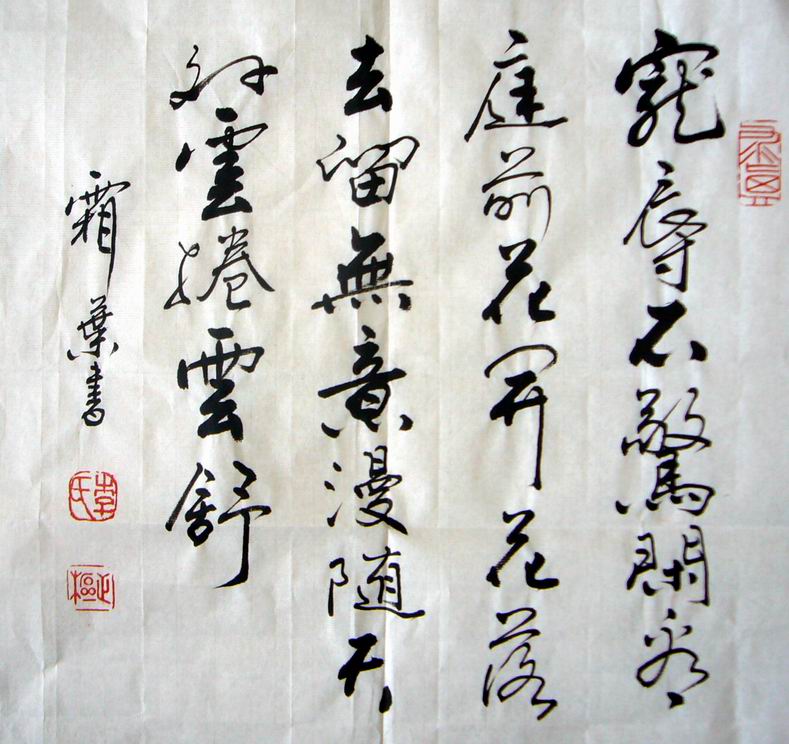 寵辱不驚閑看
庭前花開花落
去留無意漫随天
外雲捲雲舒
霜葉書
李氏